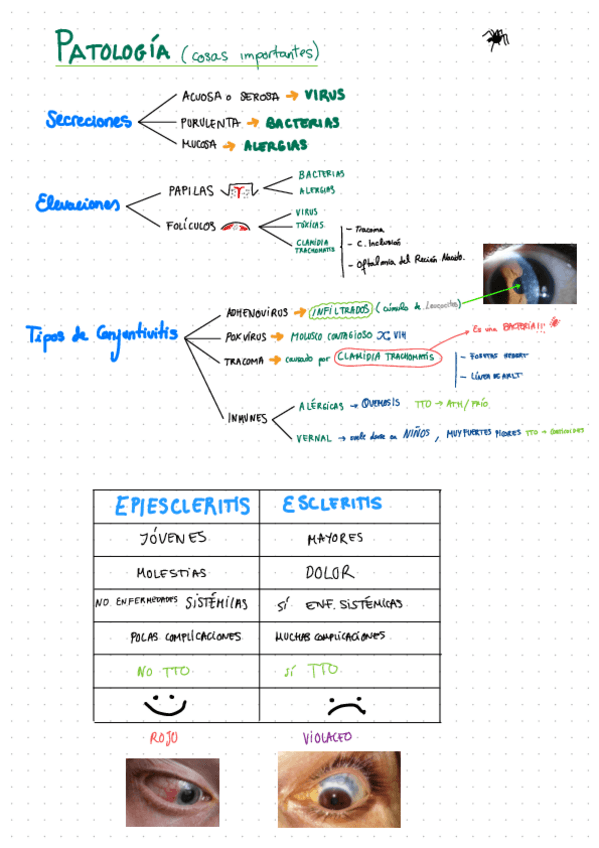 PATOLOGÍA (cosas importantes)
Secreciones
ACUOSA o SEROSA → VIRUS
PURULENTA → BACTERIAS
MUCOSA → ALERGIAS
Elevaciones
PAPILAS
BACTERIAS
ALERGIAS
FOLÍCULOS
VIRUS
TÓXICAS
CLAMIDIA TRACHOMATIS
- Tracoma
- C. Inclusión
- Oftalmia del Recién Nacido.
Tipos de Conjuntivitis
ADHENOVIRUS → INFILTRADOS (cúmulo de Leucocitos)
POXVIRUS → MOLUSCO CONTAGIOSO VIH
TRACOMA → causado por CLAMIDIA TRACHOMATIS
Es una BACTERIA!!!
- FOSETAS HERBERT
- LÍNEA DE ARLT
INMUNES
ALÉRGICAS → QUEMOSIS TTO → ATH/FRÍO
VERNAL → suele darse en NIÑOS, MUY FUERTES PICORES TTO → CORTICOIDES
EPIESCLERITIS ESCLERITIS
JÓVENES MAYORES
MOLESTIAS DOLOR
NO ENFERMEDADES SISTÉMICAS SÍ ENF. SISTÉMICAS
POCAS COMPLICACIONES MUCHAS COMPLICACIONES
NO TTO SÍ TTO
ROJO VIOLACEO